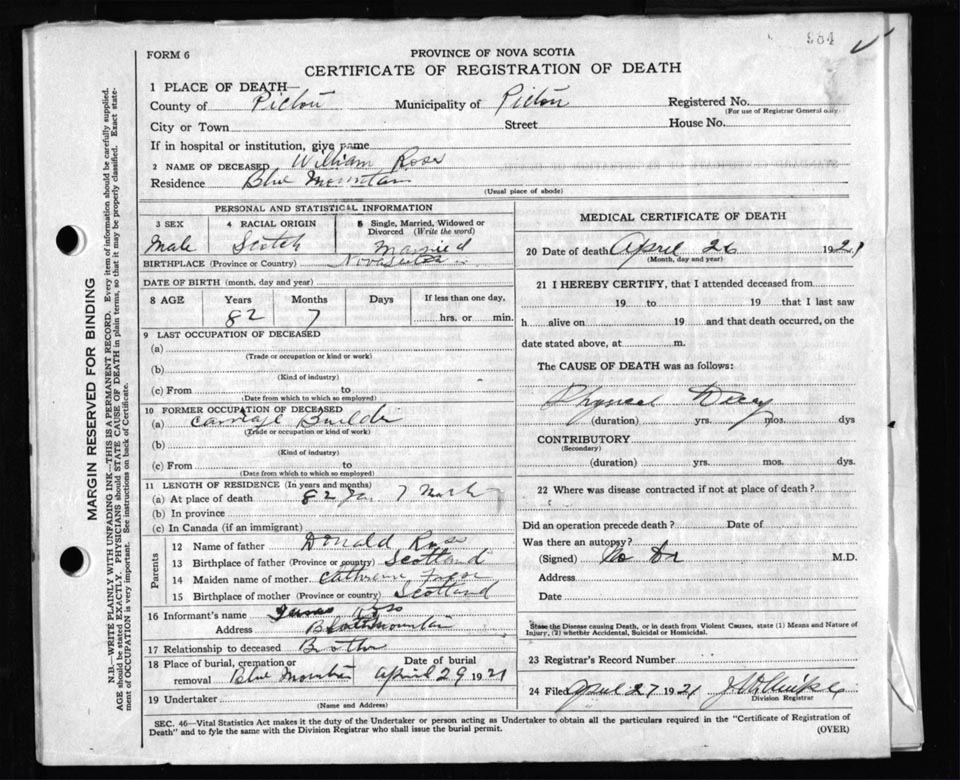 984
FORM 6
PROVINCE OF NOVA SCOTIA
CERTIFICATE OF REGISTRATION OF DEATH
1 PLACE OF DEATH—
County of Pictou Municipality of Pictou Registered No.
(For use of Registrar General only)
City or Town Street House No.
If in hospital or institution, give name
2 NAME OF DECEASED William Ross
Residence Blue Mountain
(Usual place of abode)
PERSONAL AND STATISTICAL INFORMATION
3 SEX 4 RACIAL ORIGIN 5 Single, Married, Widowed or Divorced (Write the word)
Male Scotch Married
BIRTHPLACE (Province or Country) Nova Scotia
DATE OF BIRTH (month, day and year)
8 AGE Years Months Days If less than one day,
82 7 hrs. or min.
9 LAST OCCUPATION OF DECEASED
(a)
(Trade or occupation or kind or work)
(b)
(Kind of industry)
(c) From to
(Date from which to which so employed)
10 FORMER OCCUPATION OF DECEASED
(a) Carriage Builder
(Trade or occupation or kind of work)
(b)
(Kind of industry)
(c) From to
(Date from which to which so employed)
11 LENGTH OF RESIDENCE (In years and months)
(a) At place of death 82 yrs 7 Months
(b) In province
(c) In Canada (if an immigrant)
Parents
12 Name of father Donald Ross
13 Birthplace of father (Province or country) Scotland
14 Maiden name of mother
15 Birthplace of mother (Province or country) Scotland
16 Informant's name
Address Mountain
17 Relationship to deceased Brother
18 Place of burial, cremation or removal Blue Mountain Date of burial April 29 1921
19 Undertaker
(Name and Address)
MEDICAL CERTIFICATE OF DEATH
20 Date of death April 26 1921
(Month, day and year)
21 I HEREBY CERTIFY, that I attended deceased from
19 to 19 that I last saw
h alive on 19 and that death occurred, on the
date stated above, at m.
The CAUSE OF DEATH was as follows:
Physical Decay
(duration) yrs. mos. dys
CONTRIBUTORY
(Secondary)
(duration) yrs. mos. dys.
22 Where was disease contracted if not at place of death?
Did an operation precede death? Date of
Was there an autopsy?
(Signed) No Dr M.D.
Address
Date
State the Disease causing Death, or in death from Violent Causes, state (1) Means and Nature of
Injury, (2) whether Accidental, Suicidal or Homicidal.
23 Registrar's Record Number
24 Filed April 27 1921
Division Registrar
SEC. 46—Vital Statistics Act makes it the duty of the Undertaker or person acting as Undertaker to obtain all the particulars required in the "Certificate of Registration of
Death" and to fyle the same with the Division Registrar who shall issue the burial permit.
(OVER)
MARGIN RESERVED FOR BINDING
N.B.—WRITE PLAINLY WITH UNFADING INK—THIS IS A PERMANENT RECORD. Every item of information should be carefully supplied.
AGE should be stated EXACTLY. PHYSICIANS should STATE CAUSE OF DEATH in plain terms, so that it may be properly classified. Exact state-
ment of OCCUPATION is very important. See instructions on back of Certificate.